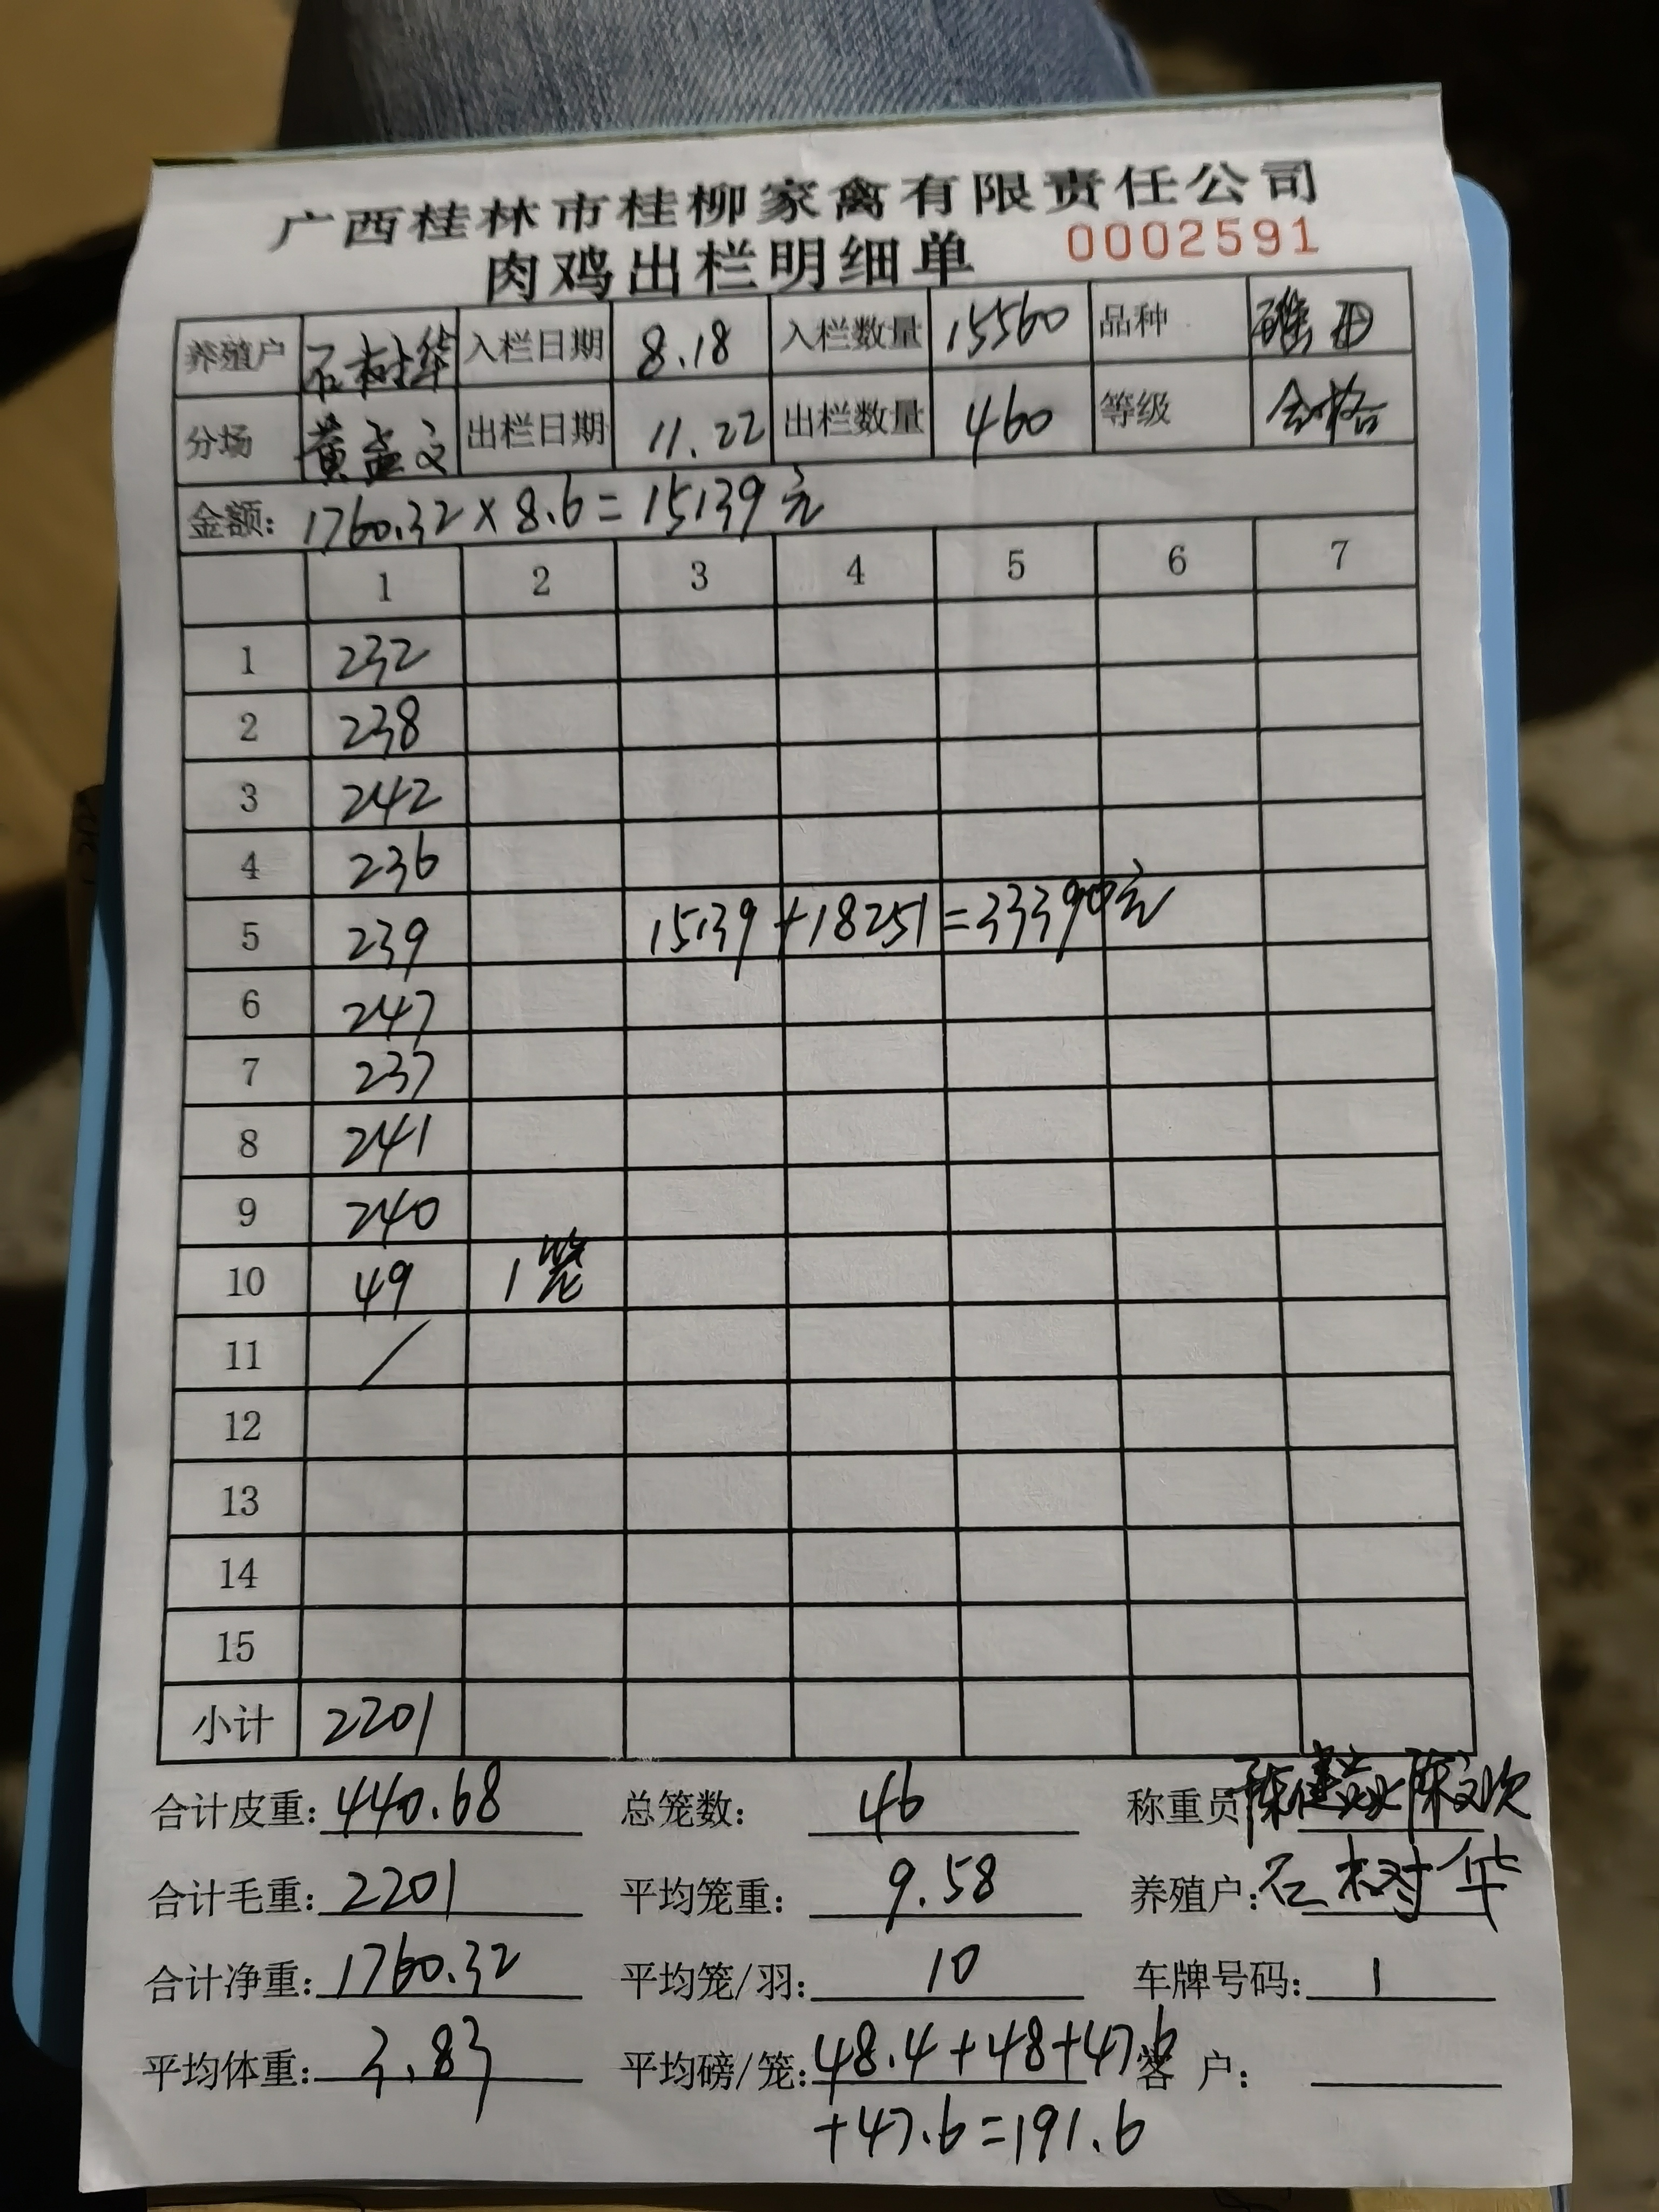 广西桂林市桂柳家禽有限责任公司
肉鸡出栏明细单 0002591
养殖户 石树华 入栏日期 8.18 入栏数量 15560 品种
分场 黄孟文 出栏日期 11.22 出栏数量 460 等级 合格
金额: 1760.32×8.6=15139元
1 2 3 4 5 6 7
1 232
2 238
3 242
4 236
5 239 15139+18251=33390元
6 247
7 237
8 241
9 240
10 49 1笼
11 /
12
13
14
15
小计 2201
合计皮重: 440.68 总笼数: 46 称重员
合计毛重: 2201 平均笼重: 9.58 养殖户: 石树华
合计净重: 1760.32 平均笼/羽: 10 车牌号码: 1
平均体重: 3.83 平均磅/笼: 48.4+48+47.6 客户:
+47.6=191.6